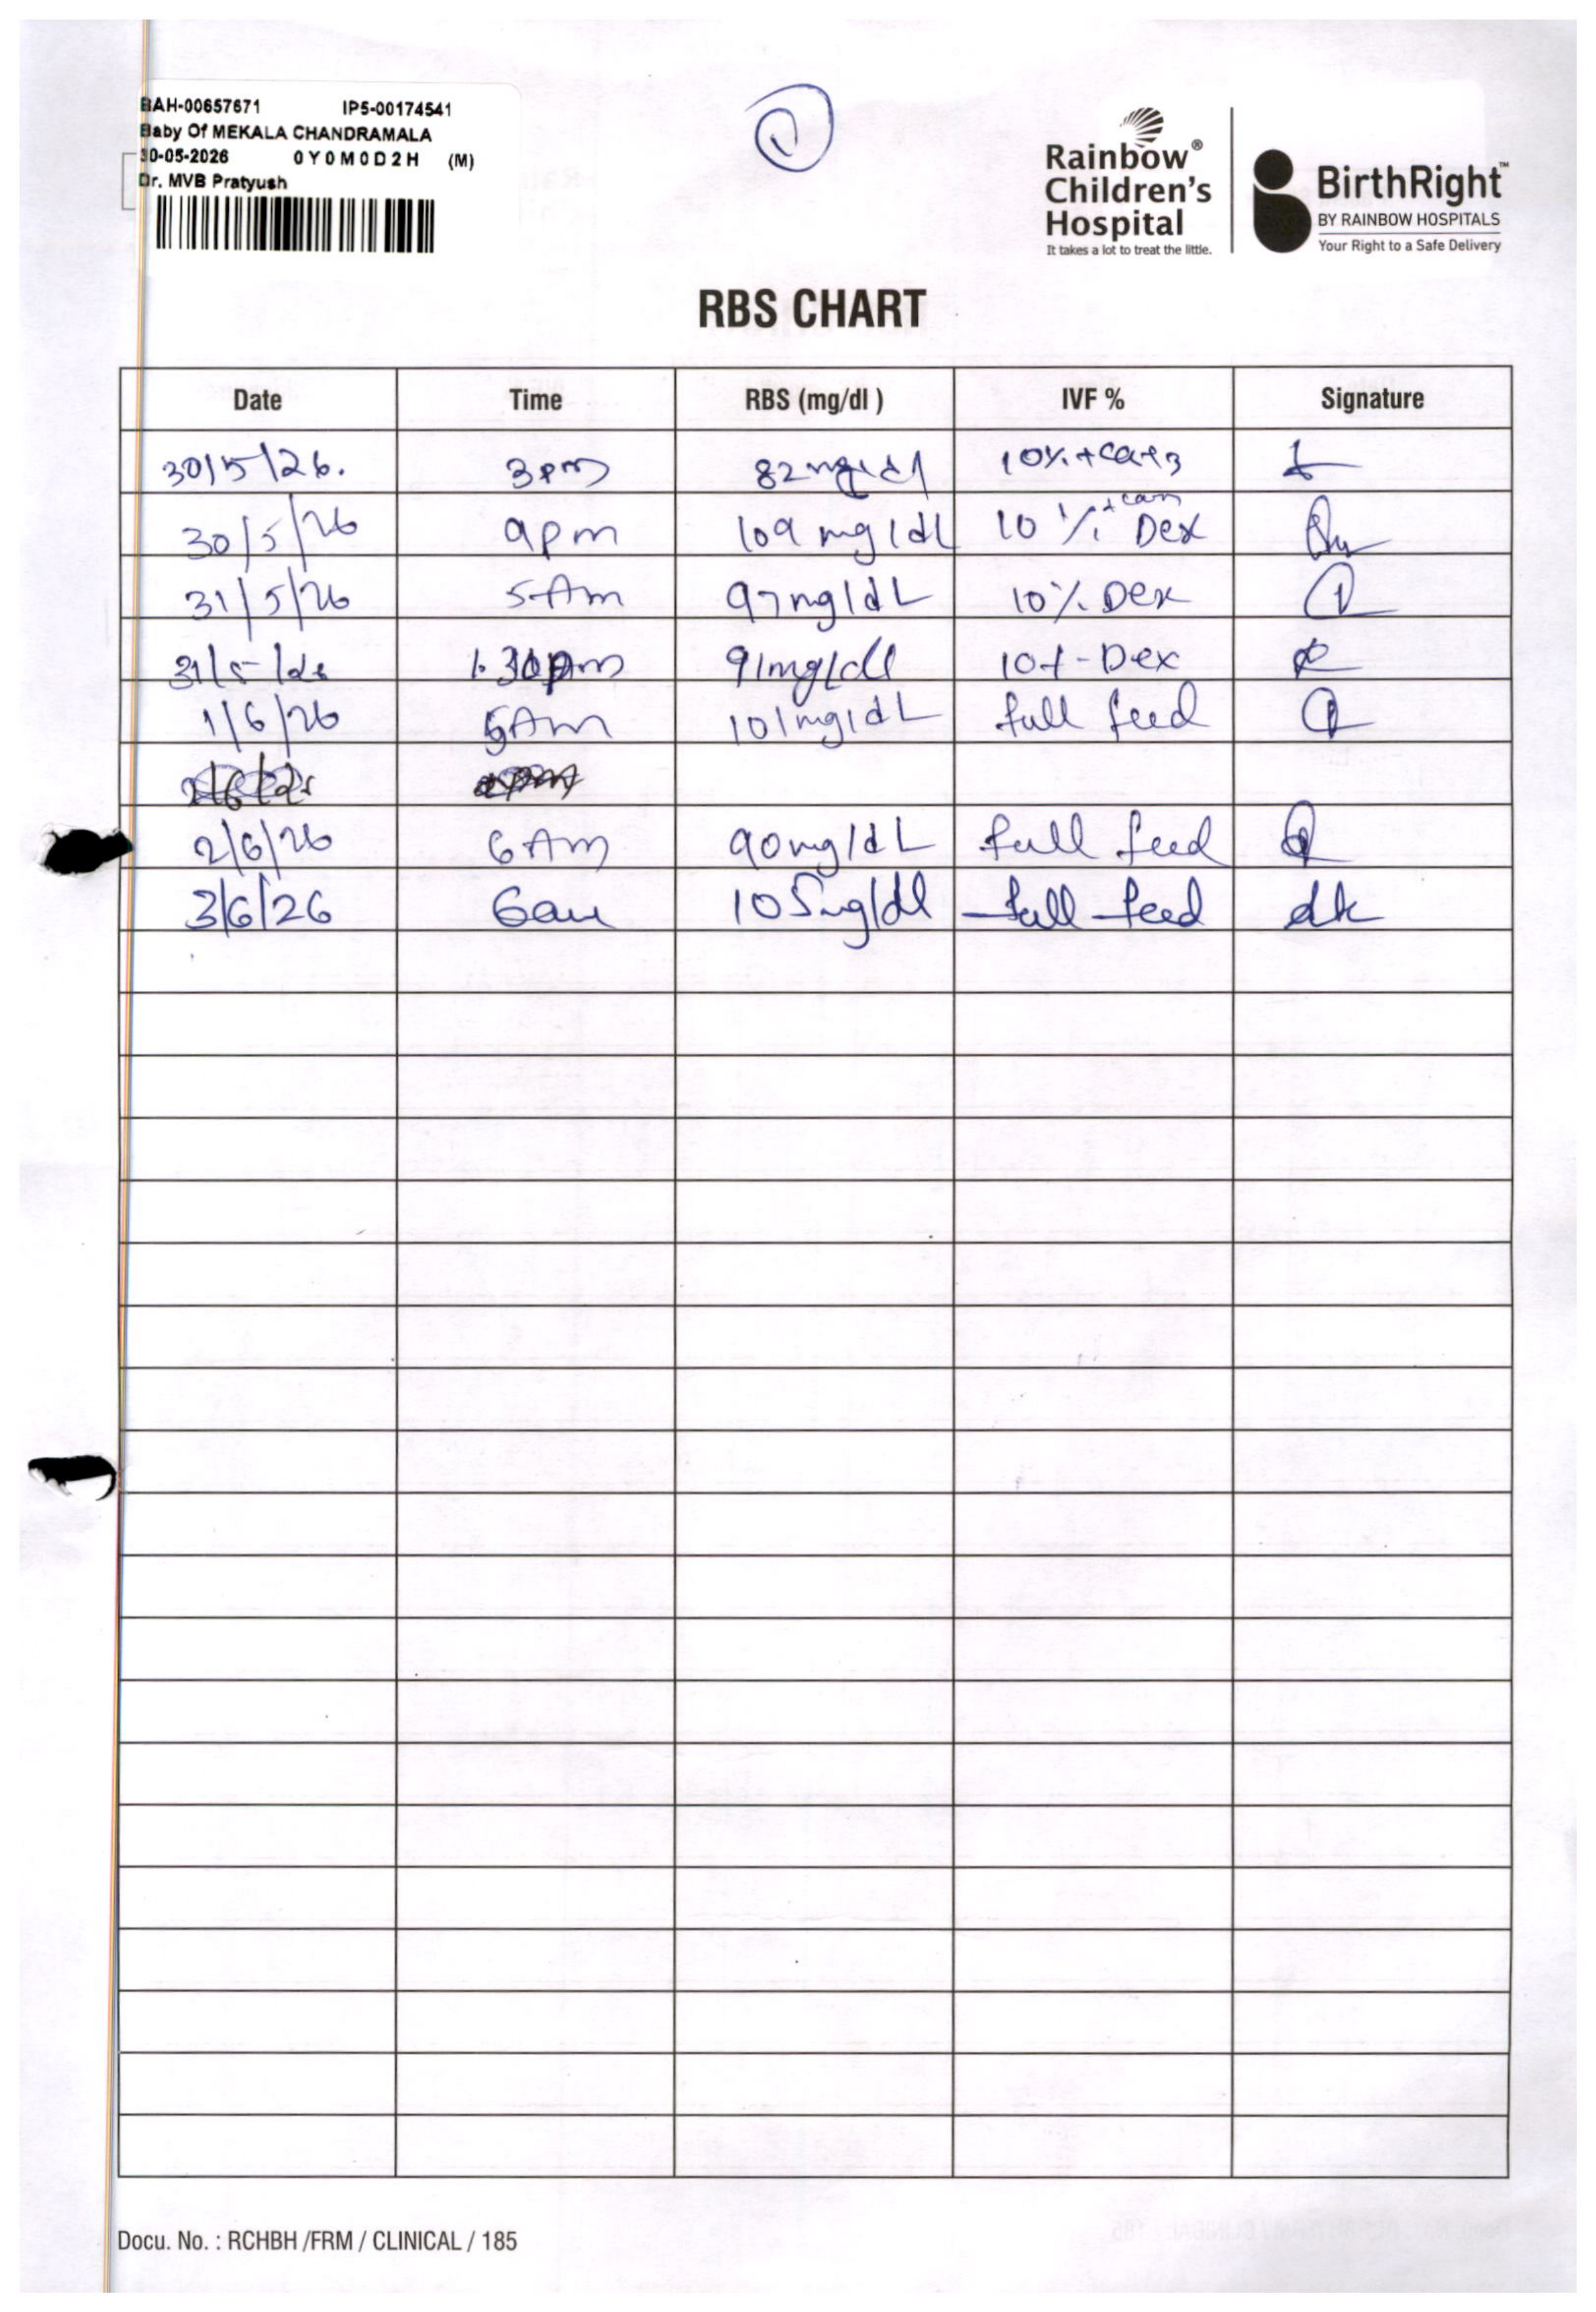 BAH-00657671 IP5-00174541
Baby Of MEKALA CHANDRAMALA
30-05-2026 0Y0M0D2H (M)
Dr. MVB Pratyush
1
Rainbow®
Children's
Hospital
It takes a lot to treat the little.
BirthRight™
BY RAINBOW HOSPITALS
Your Right to a Safe Delivery
RBS CHART
Date Time RBS (mg/dl ) IVF % Signature
30/5/26. 3pm 82mg/dl 10%+
30/5/26 9pm 109 mg/dL 10% Dex
31/5/26 5Am 97mg/dL 10% Dex
31/5/26 1.30pm 91mg/dl 10%-Dex
1/6/26 5Am 101mg/dL full feed
2/6/26 6Am 90mg/dL full feed
3/6/26 6am 105mg/dl full feed dk
Docu. No. : RCHBH /FRM / CLINICAL / 185